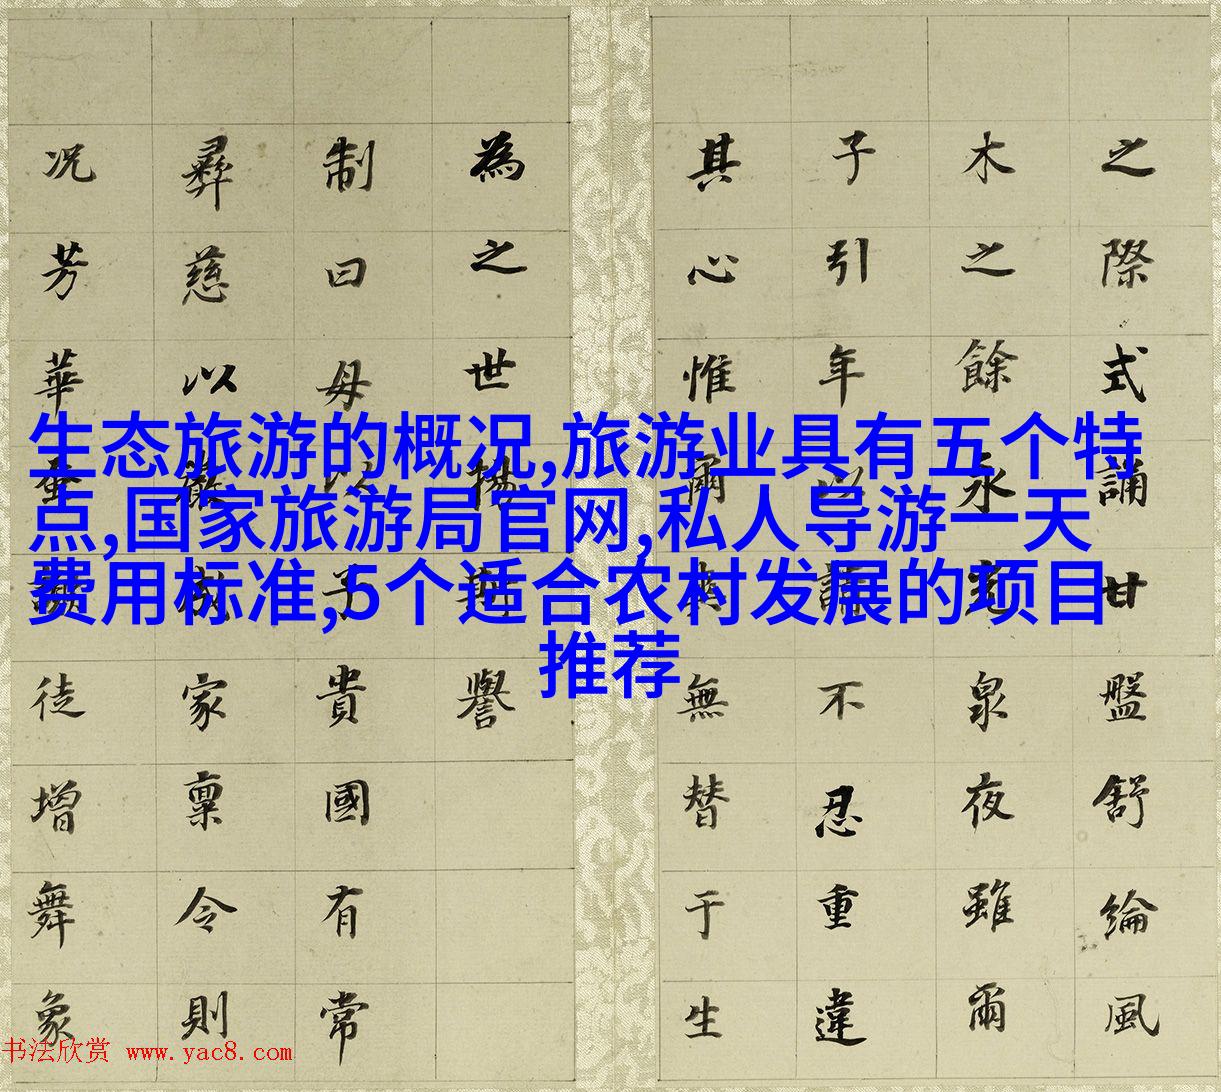 生态旅游的概况,旅游业具有五个特
点,国家旅游局官网,私人导游一天
费用标准,5个适合农村发展的项目
推荐
之際式誦廿盤舒綸風
木之餘永泉夜雖爾
子引年以不忍重違
其心惟爾無替于生
為之世揚譽
制曰母以子貴國有常
彝慈以嚴家稟令則
况芳華蚤徒增舞象
书法欣赏 www.yac8.com